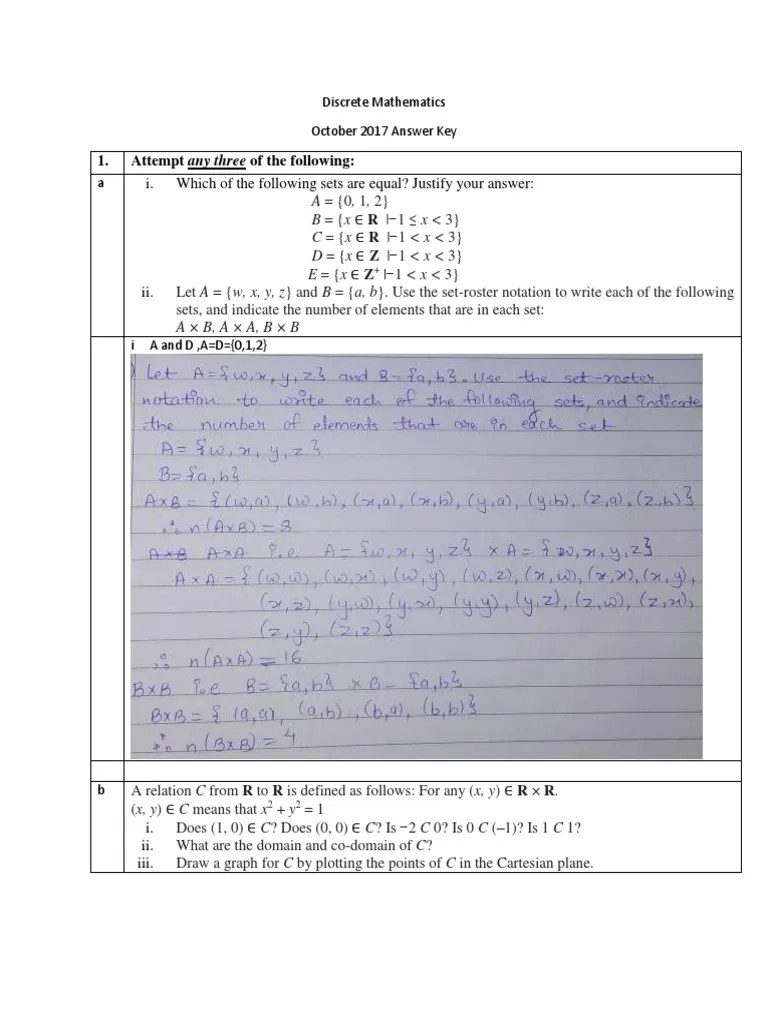 Discrete Mathematics
October 2017 Answer Key
1. Attempt any three of the following:
a i. Which of the following sets are equal? Justify your answer:
A = {0, 1, 2}
B = {x ∈ R |−1 ≤ x < 3}
C = {x ∈ R |−1 < x < 3}
D = {x ∈ Z |−1 < x < 3}
E = {x ∈ Z⁺ |−1 < x < 3}
ii. Let A = {w, x, y, z} and B = {a, b}. Use the set-roster notation to write each of the following
sets, and indicate the number of elements that are in each set:
A × B, A × A, B × B
i A and D ,A=D={0,1,2}
Let A={w,x,y,z} and B={a,b}. Use the set-roster
notation to write each of the following sets, and indicate
the number of elements that are in each set
A= {w, x, y, z}
B={a,b}
A×B = {(w,a), (w,b), (x,a), (x,b), (y,a), (y,b), (z,a), (z,b)}
∴ n(A×B) = 8
A×B A×A i.e A= {w, x, y, z} × A = {w, x, y, z}
A×A = {(w,w), (w,x), (w,y), (w,z), (x,w), (x,x), (x,y),
(x,z), (y,w), (y,x), (y,y), (y,z), (z,w), (z,x),
(z,y), (z,z)}
∴ n(A×A) = 16
B×B i.e B= {a,b} × B= {a,b}
B×B = { (a,a), (a,b), (b,a), (b,b)}
∴ n(B×B) = 4
b A relation C from R to R is defined as follows: For any (x, y) ∈ R × R.
(x, y) ∈ C means that x² + y² = 1
i. Does (1, 0) ∈ C? Does (0, 0) ∈ C? Is −2 C 0? Is 0 C (−1)? Is 1 C 1?
ii. What are the domain and co-domain of C?
iii. Draw a graph for C by plotting the points of C in the Cartesian plane.